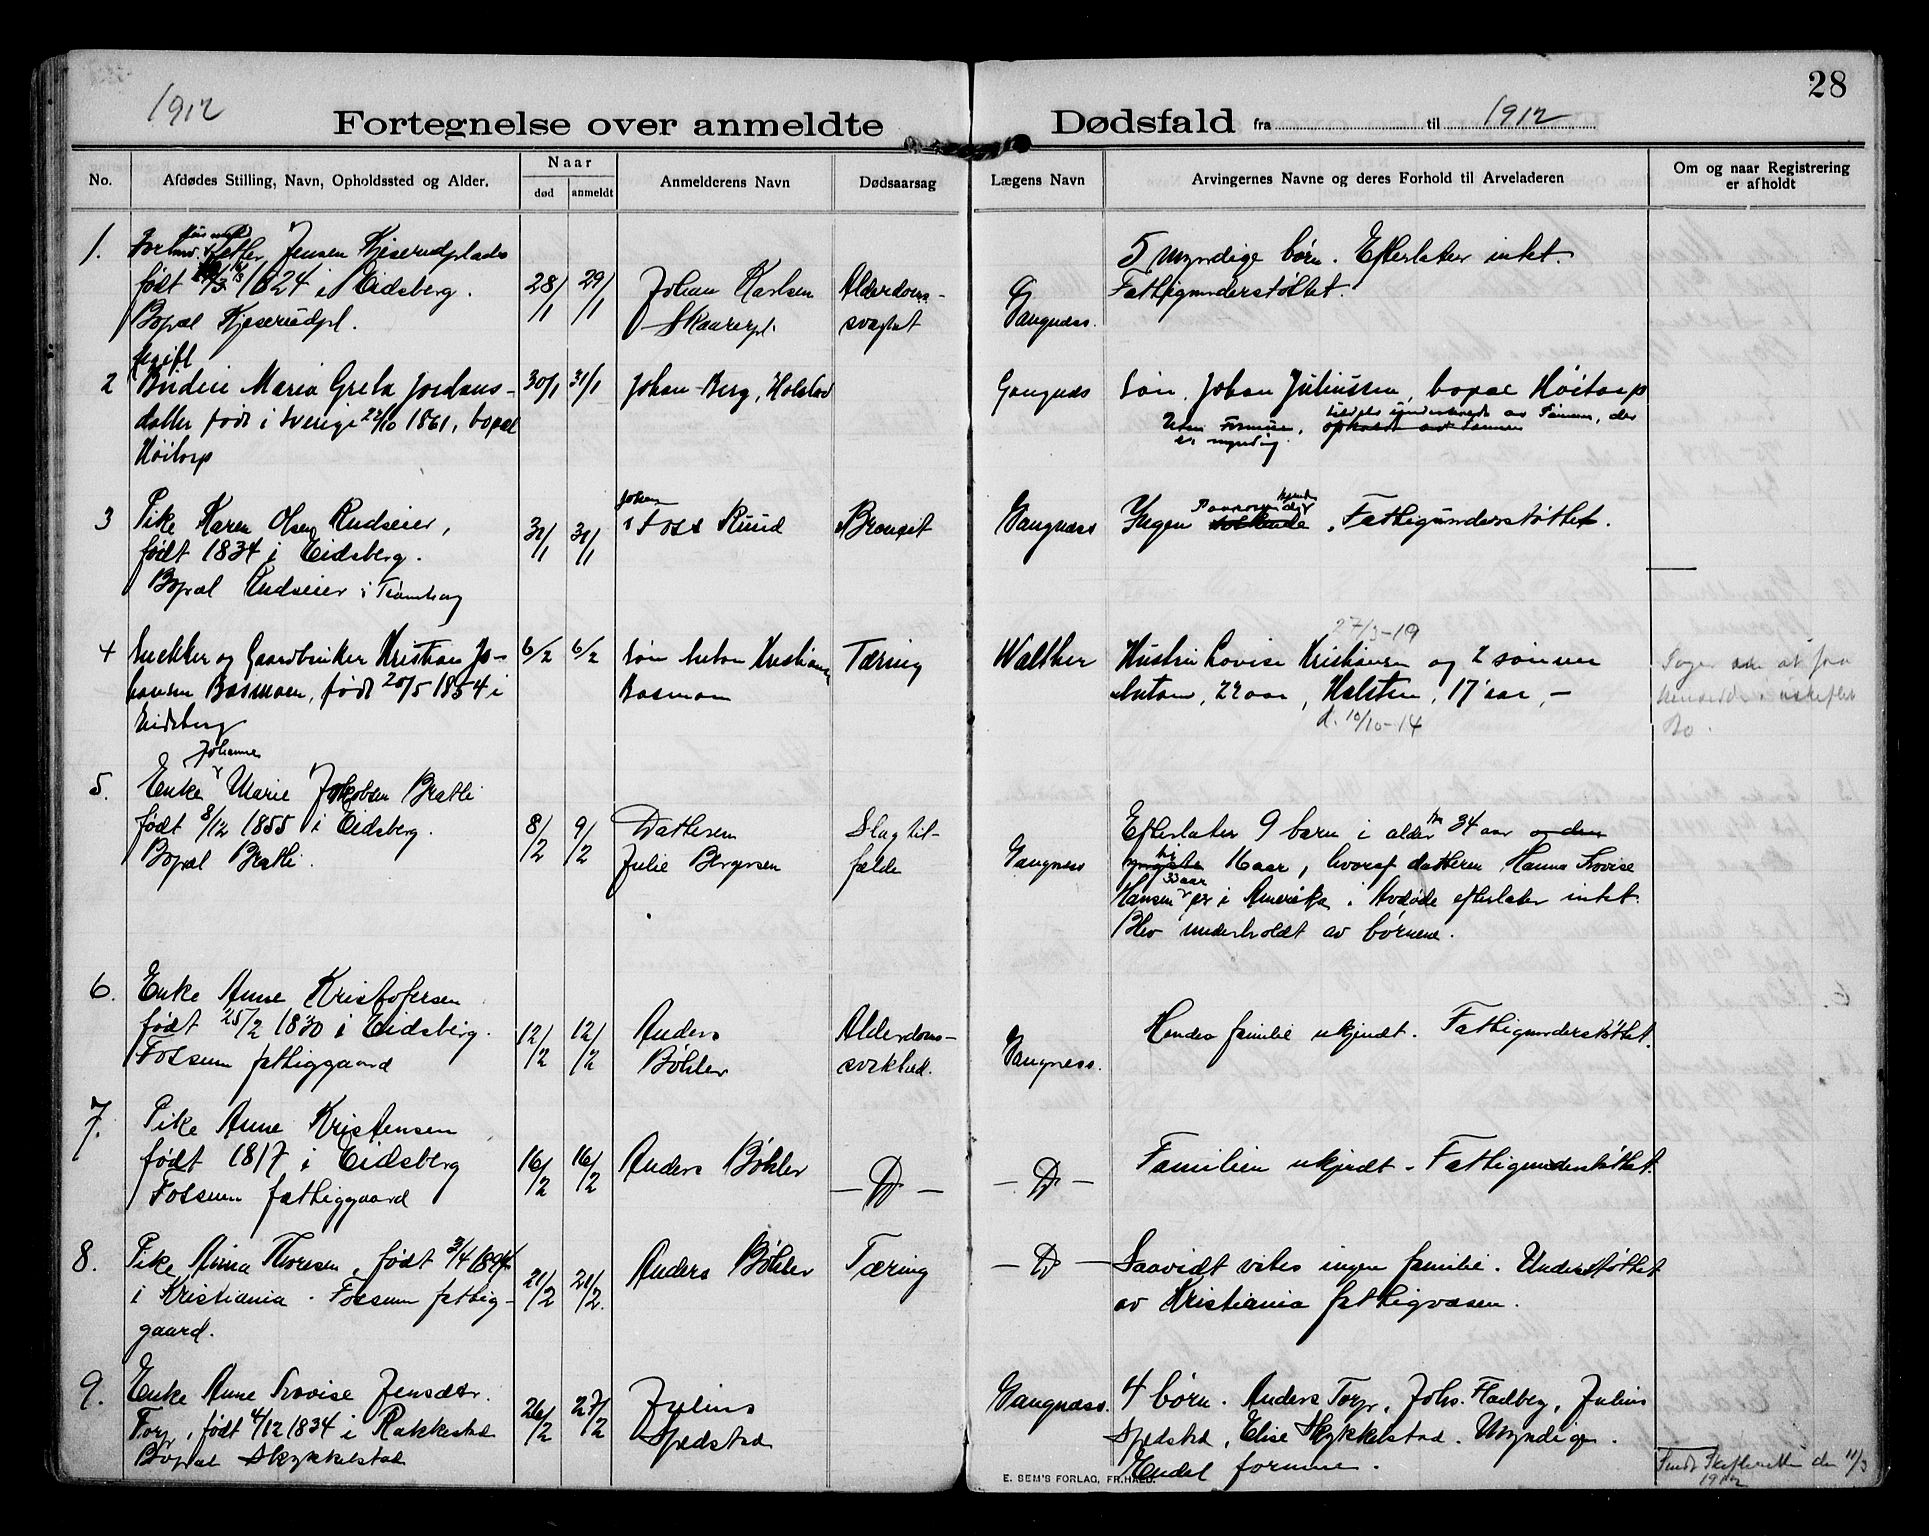 28
1912
Fortegnelse over anmeldte Dødsfald fra til 1912
No. Afdødes Stilling, Navn, Opholdssted og Alder. Naar død anmeldt Anmelderens Navn Dødsaarsag Lægens Navn Arvingernes Navne og deres Forhold til Arveladeren Om og naar Registrering er afholdt
1.
Jensen Kjeserudplads
født 1824 i Eidsberg.
Bopæl Kjeserudpl.
ugift
28/1 29/1
Johan Karlsen
Skaarerpl.
Alderdoms-
svaghet
Gangnæss.
5 myndige børn. Efterlater intet.
Fattigunderstøttet.
2
Budeie Maria Greta Jordans-
datter født i Sverige 22/10 1861, bopæl
Høitorp
30/1 31/1
Johan Berg, Holstad
Gangnæs
Søn Johan Juliussen, bopæl Høitorp
Uten Formue, tildels understøttet av Sønnen, der
er myndig.
3
Pike Karen Olsen Rudseier,
født 1834 i Eidsberg.
Bopæl Rudseier i Trømborg
31/1 31/1
Johan
Foss Ruud
Bronkit
Gangnæss
Ingen kjendte
Paarørende. Fattigunderstøttet.
4
Snekker og Gaardbruker Kristian Jo-
hansen Basmoen, født 20/5 1854 i
Eidsberg
6/2 6/2
Søn Anton Kristiansen
Basmoen
Tæring
Walther
27/3-19
Hustru Lovise Kristiansen og 2 sønner
Anton, 22 aar, Halsten, 17 aar, -
d. 10/10-14
Søger om at faa
hensidde i uskiftet
Bo.
5.
Johanne
Enke Marie Jakobsen Bratli
født 8/12 1855 i Eidsberg.
Bopæl Bratli.
8/2 9/2
Datteren
Julie Bergersen
Slagtil-
fælde
Gangness
Efterlater 9 barn i alder fra 34 aar og den
yngste til 16 aar, hvoraf datteren Hanna Lovise
33 aar
Hansen er i Amerika. Avdøde efterlater intet.
Blev underholdt av børnene.
6.
Enke Anne Kristofersen
født 25/2 1830 i Eidsberg.
Fossum fattiggaard
12/2 12/2
Anders
Bøhler
Alderdoms-
svakhed.
Gangness.
Hendes familie ukjendt. Fattigunderstøttet.
7.
Pike Anne Kristensen
født 1817 i Eidsberg
Fossum fattiggaard
16/2 16/2
Anders Bøhler
- D -
- D -
Familien ukjendt - Fattigunderstøttet.
8.
Pike Anna Thoresen, født 3/4
i Kristiania. Fossum fattig-
gaard.
21/2 21/2.
Anders Bøhler
Tæring
- D -
Saavidt vites ingen familie. Understøttet
av Kristiania fattigvæsen.
9.
Enke Anne Lovise Jensdtr.
Torp, født 4/12 1834 i Rakkestad
Bopæl Skykkelstad
26/2 27/2
Julius
Spædstad
Gangnæss.
4 børn. Anders Torp, Johs. Fladberg, Julius
Spedstad, Elise Skykkelstad. Myndige.
Endel formue.
Sendt Skifteretten den 11/3
1912
E. SEM'S FORLAG, FR.HALD.